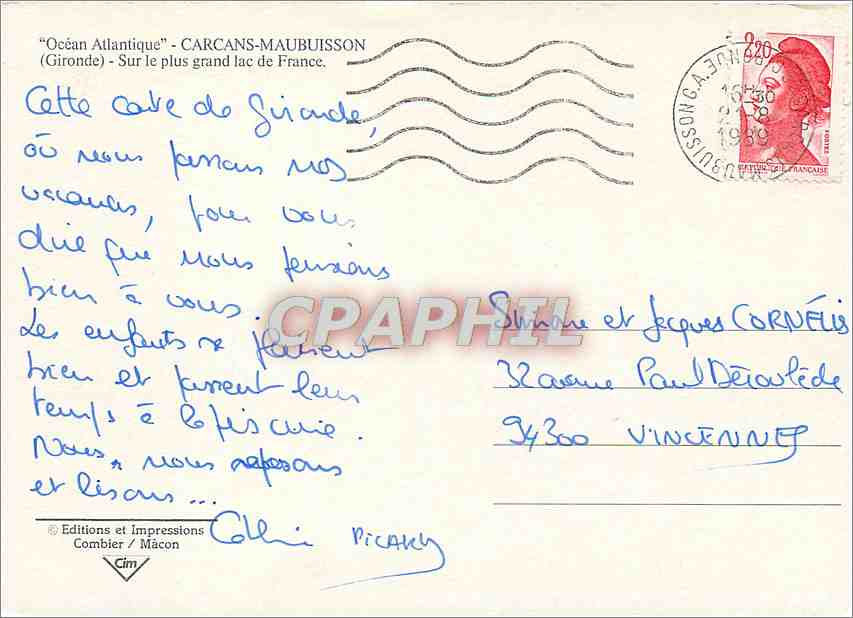 "Océan Atlantique" - CARCANS-MAUBUISSON
(Gironde) - Sur le plus grand lac de France.
Cette carte de Gironde,
où nous passons nos
vacances, pour vous
dire que nous pensons
bien à vous.
Les enfants se plaisent
bien et passent leur
temps à la piscine.
Nous, nous reposons
et lisons...
PICARD
© Editions et Impressions
Combier / Mâcon
Cim
2,20
16H30
21-8
1989
POSTES
REPUBLIQUE FRANCAISE
CPAPHIL
Simone et Jacques CORNÉLIS
32 avenue Paul Déroulède
94300 VINCENNES